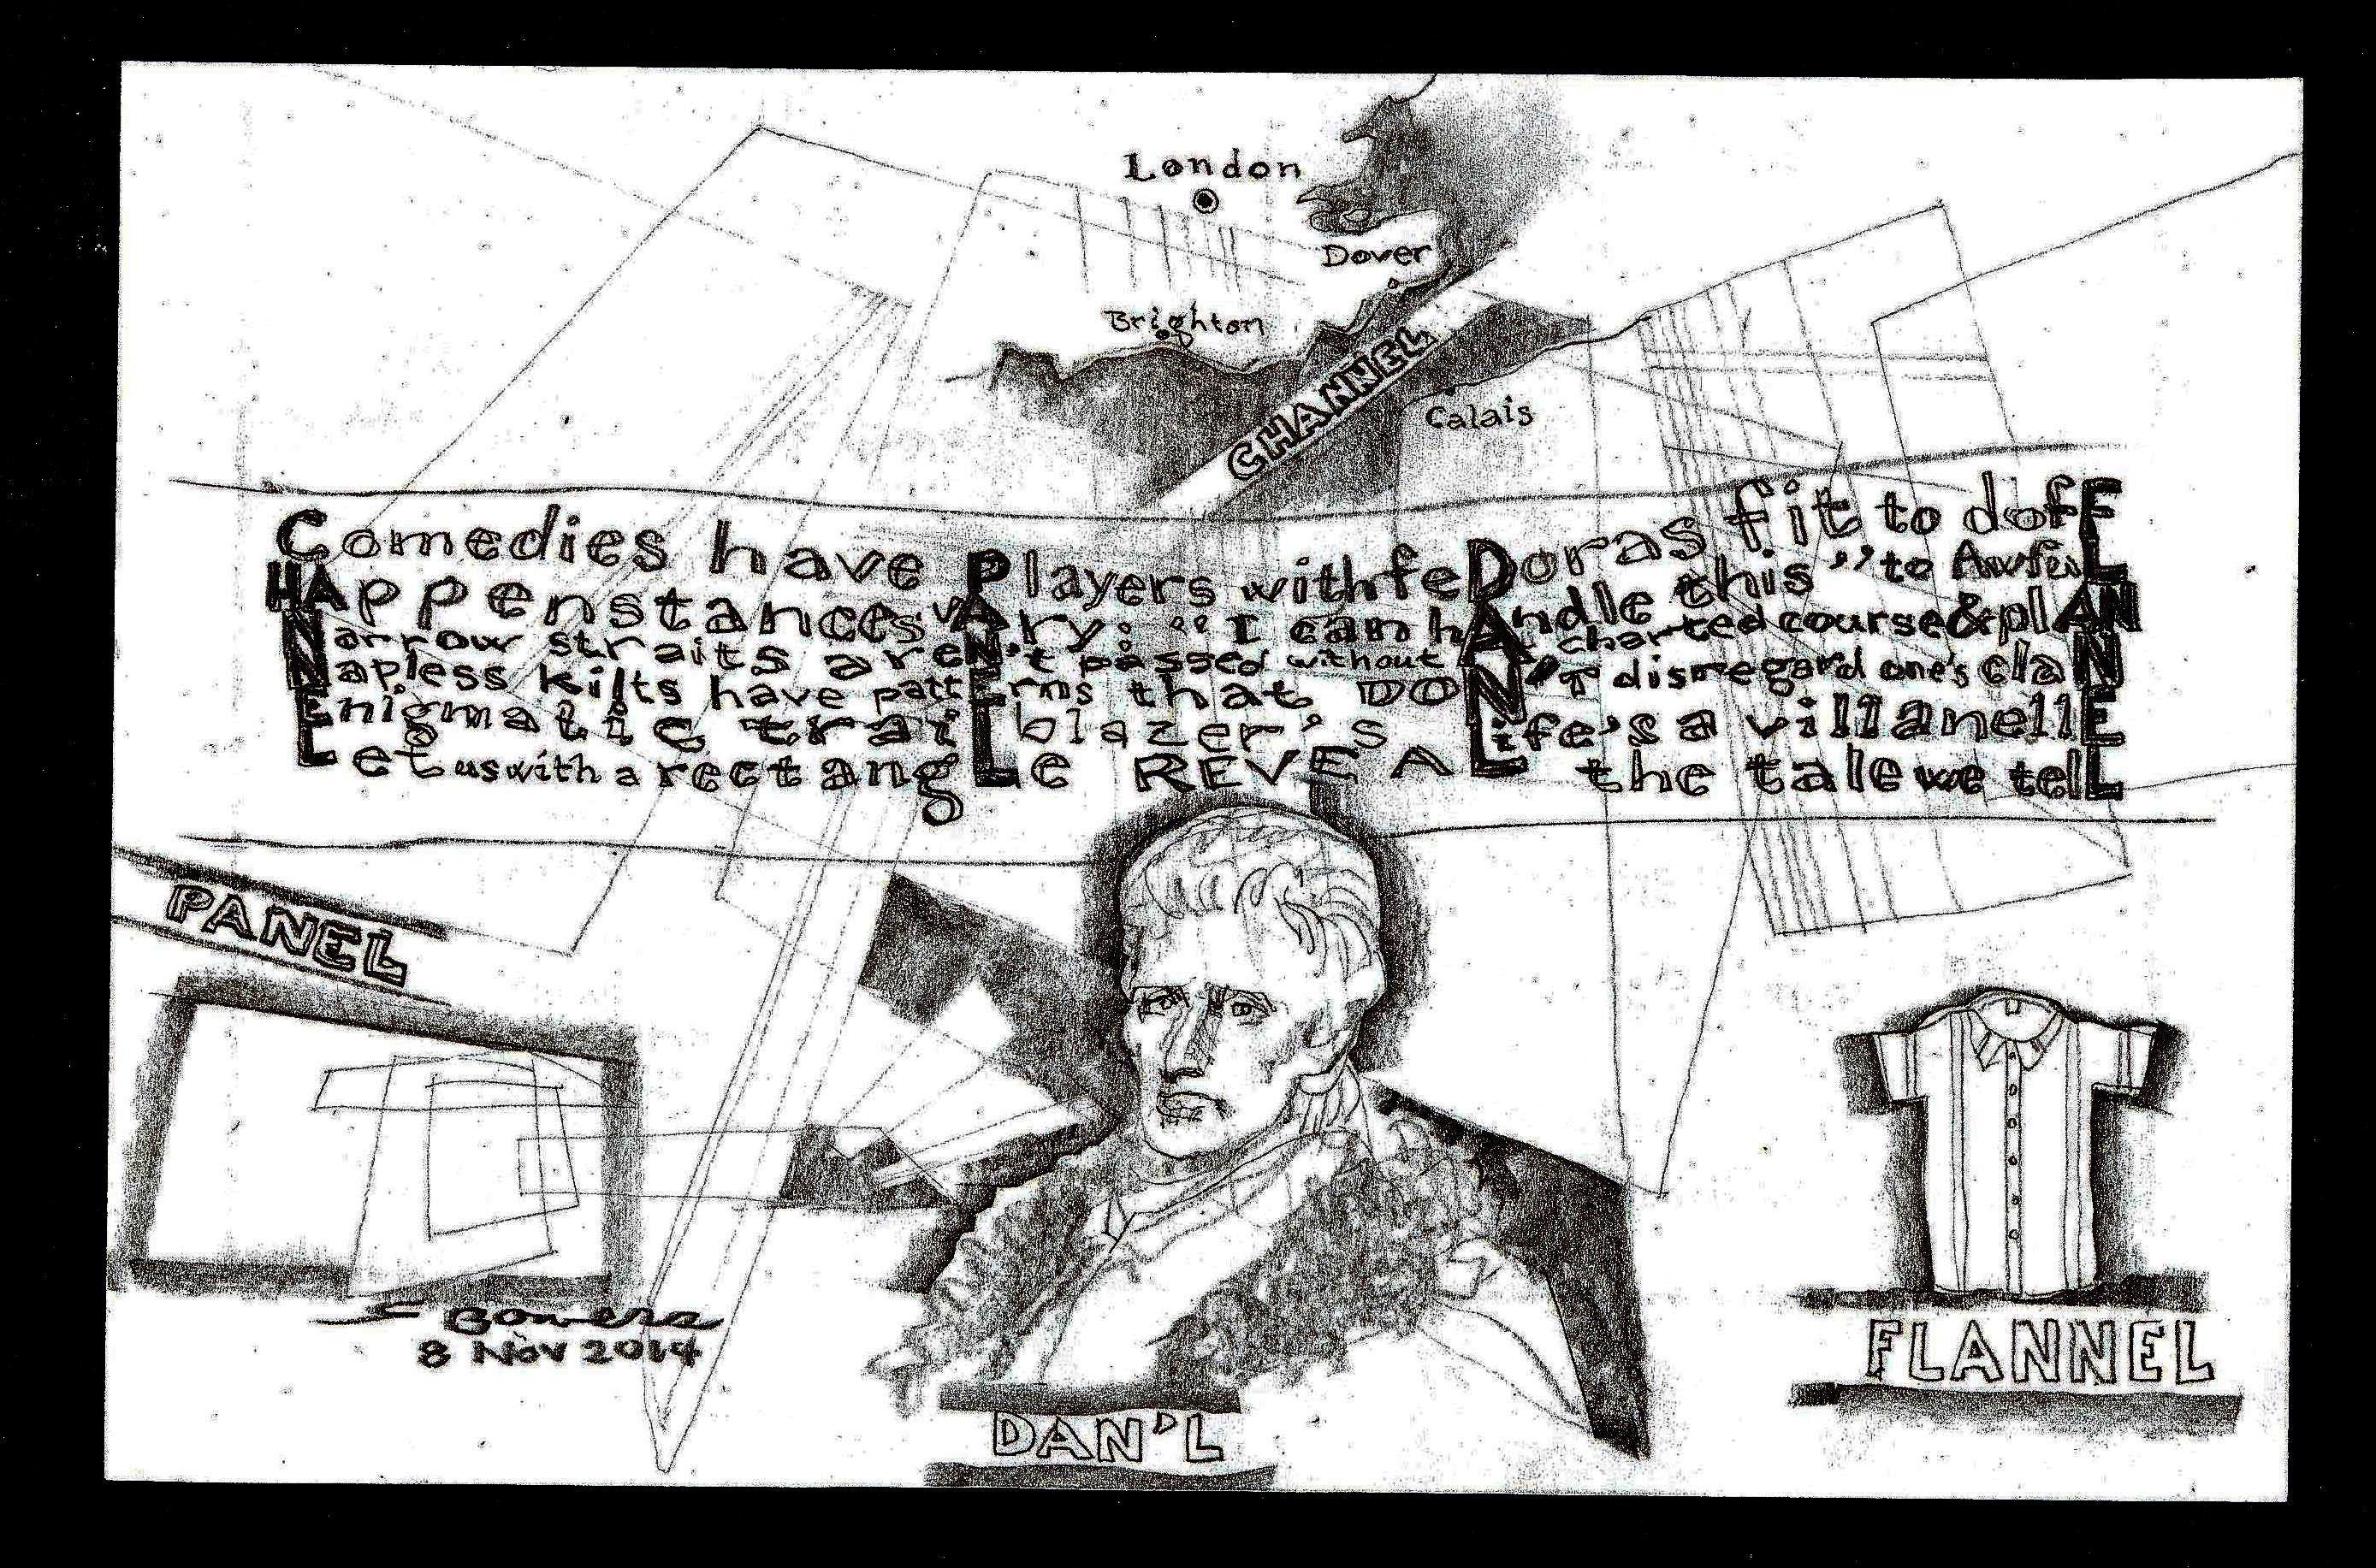 London
Dover
Brighton
CHANNEL
Calais
Comedies have Players with feDoras fit to dofF
HAppenstances vAry: "I can hAndle this" to AwfuL
Narrow straits areN't passed without A charted course & plAN
Napless kilts have pattErns that DON'T disregard one's claN
Enigmatic traiLblazer's Life's a villanellE
Let us with a rectangLe REVEAL the tale we telL
PANEL
Bowers
8 Nov 2014
DAN'L
FLANNEL